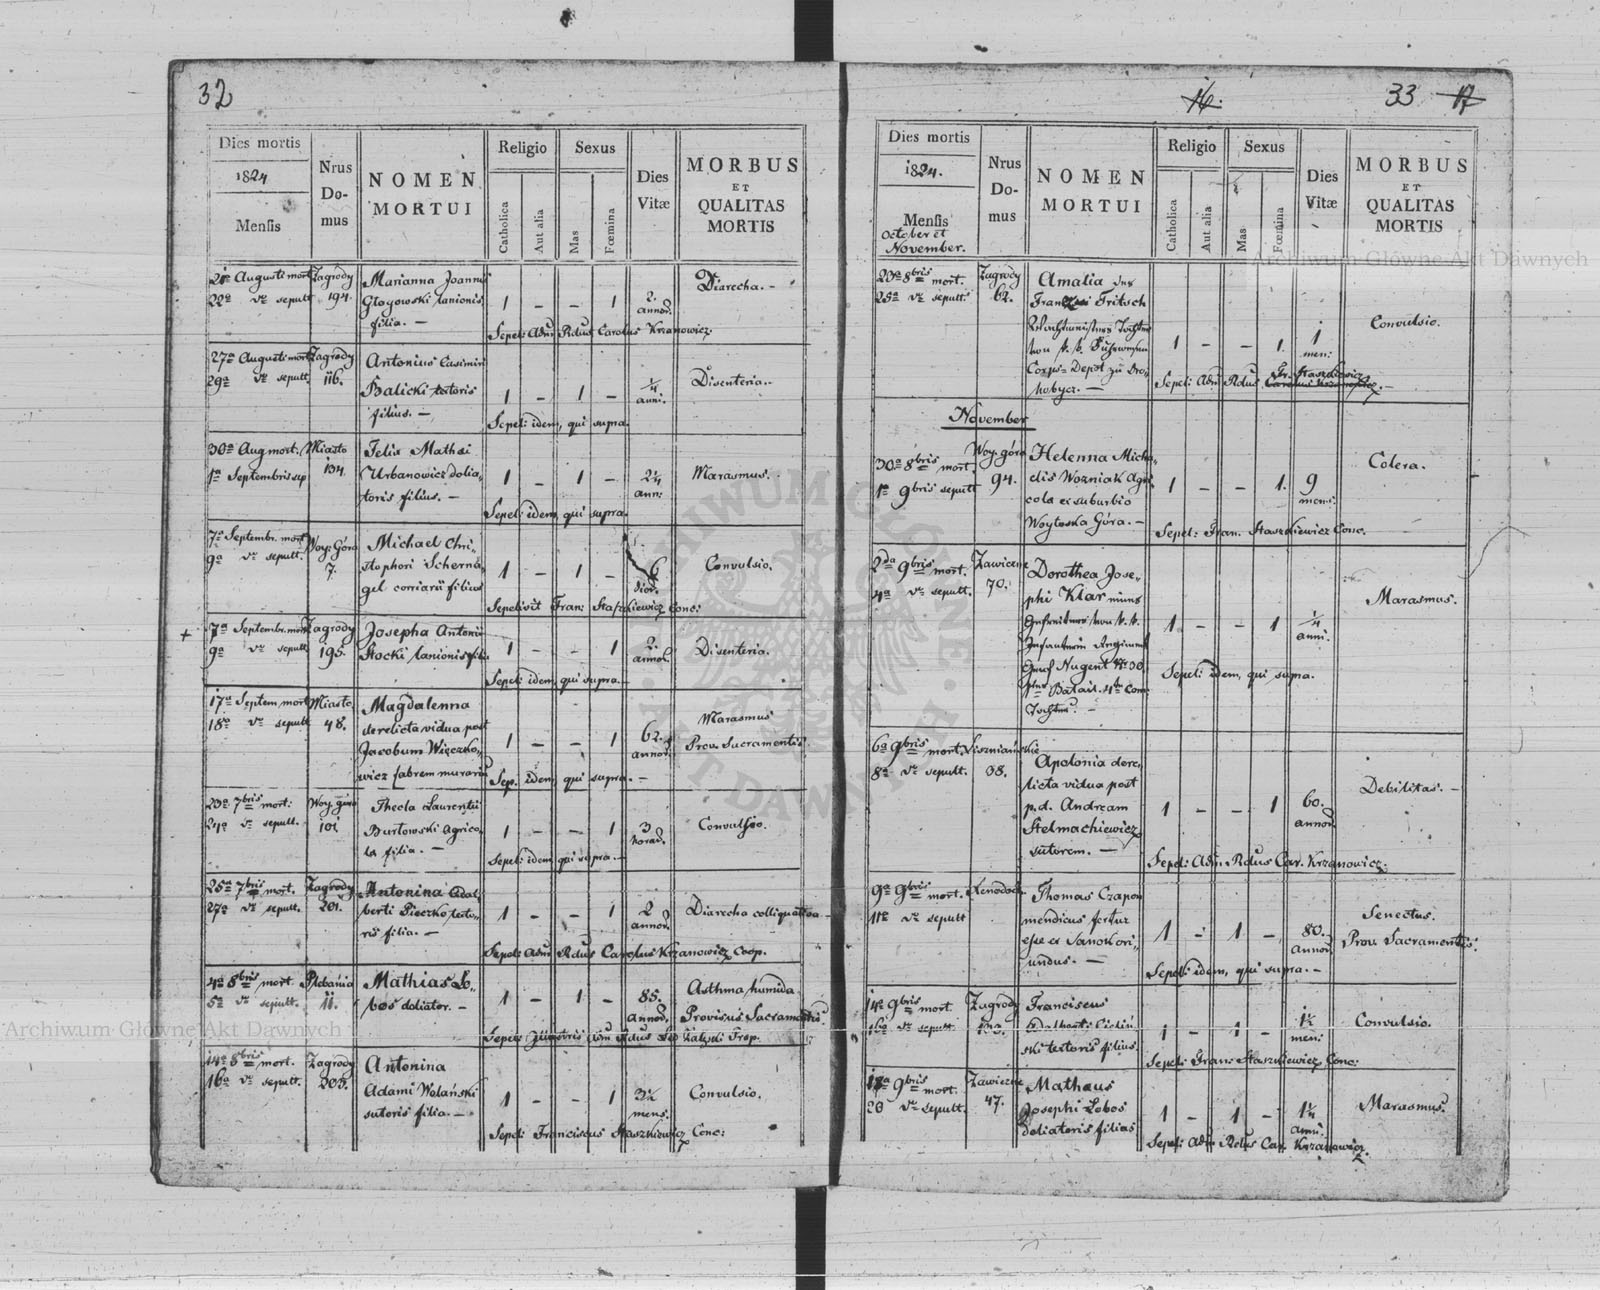 32
Dies mortis
1824
Mensis
Nrus Do-mus
NOMEN MORTUI
Religio
Catholica
Aut alia
Sexus
Mas
Fœmina
Dies Vitæ
MORBUS
ET
QUALITAS
MORTIS
21a Augusti mort. Zagrody Marianna Joannis
22a dto sepult. 194. Głogowski lanionis 1 - - 1 2. Diarecha. -
filia. - annor.
Sepel: Adm Rdus Carolus Krzanowicz
27a Augusti mort. Zagrody Antonius Casimiri
29a dto sepult. 116. Balicki textoris 1 - 1 - 1/4 Disenteria. -
filius. - anni.
Sepel: idem, qui supra.
30a Aug mort. Miasto Felix Mathei
1a Septembris sep 134. Urbanowicz dolia- 1 - 1 - 2 1/4 Marasmus.
toris filius. - ann:
Sepel: idem, qui supra.
7a Septembr. mort. Woy: Góra Michael Chri-
9a dto sepult. 7. stophori Scherna- 1 - 1 - 6 Convulsio.
gel corriarii filius dier.
Sepelivit Fran: Staszkiewicz Conc:
+ 7a Septembr. mort. Zagrody Josepha Antonii
9a dto sepult. 195. Stocki lanionis filia 1 - - 1 2. Disenteria.
annor.
Sepel: idem, qui supra. -
17a Septem. mort. Miasto Magdalenna
18a dto sepult 48. derelicta vidua post Marasmus
Jacobum Więczko- 1 - - 1 62. Prov. Sacramentis
wicz fabrem murariu annor.
Sep. idem, qui supra. -
23a 7bris mort: Woy. góra Thecla Laurentii
24a dto sepult. 101 Burtowski agrico- 1 - - 1 3 Convulsio.
la filia. - horar.
Sepel: idem, qui supra. -
25a 7bris mort. Zagrody Antonina Adal-
27a dto sepult. 201. berti Pieczko texto- 1 - - 1 2 Diarecha colliquativa -
ris filia. - annor.
Sepel: Adm Rdus Carolus Krzanowicz Coop.
4a 8bris mort. Plebania Mathias Lo-
5a dto sepult. 11. bos doliator. - 1 - 1 - 85. Asthma humida
annor. Provisus Sacramentis
14a 8bris mort. Zagrody Antonina
16a dto sepult. 203. Adami Wolański 1 - - 1 3 1/2 Convulsio.
sutoris filia. - mens.
Sepel: Franciscus Staszkiewicz Conc:
16.
33 17
Dies mortis
1824.
Mensis
October et
November.
Nrus Do-mus
NOMEN MORTUI
Religio
Catholica
Aut alia
Sexus
Mas
Fœmina
Dies Vitæ
MORBUS
ET
QUALITAS
MORTIS
23a 8bris mort. Zagrody Amalia des
25a dto sepult. 62. Franz Fritsch
Wachtmeisters Tochter Convulsio.
von k. k. Fuhrwesen 1 - - 1. 1 men:
Corps-Depot zu Dro-
hobycz. -
Sepel: Adm Rdus Fr. Staszkiewicz Carolus Krzanowicz. -
November
30a 8bris mort. Woy. góra Helenna Micha-
1a 9bris sepult 94. elis Wozniak Agri- 1 - - 1. 9 Colera.
cola ex suburbio mens:
Woytoska Góra. -
Sepel: Fran. Staszkiewicz Conc.
2da 9bris mort. Zawiezne Dorothea Jose-
4a dto sepult. 70. phi Klar eines
Gefreiters von k. k. 1 - - 1 1/4 Marasmus.
Infanterie Regiment anni.
Graf Nugent N 30
Batail. 4ten Com:
Tochter. -
Sepel: idem, qui supra.
6a 9bris mort. Liszniańskie
8a dto sepult. 38. Apolonia dere-
licta vidua post Debilitas. -
p. d. Andream 1 - - 1 60.
Stelmachiewicz annor.
sutorem. -
Sepel: Adm. Rdus Car. Krzanowicz:
9a 9bris mort. Xenodoch. Thomas Czapor
11a dto sepult mendicus fertur Senectus.
esse ex Sanok ori- 1 - 1 - 80. Prov. Sacramentis
undus. - annor.
Sepel: idem, qui supra. -
14a 9bris mort. Zagrody Franciscus
16a dto sepult 133. Adalberti Cieliń- 1 - 1 - 1 1/2 Convulsio.
ski textoris filius. men:
Sepel: Fran: Staszkiewicz Conc:
18a 9bris mort. Zawiezne Matheus
20 dto sepult. 47. Josephi Lobos 1 - 1 - 1 1/4 Marasmus.
doliatoris filius anni.
Sepel: Adm Rdus Car. Krzanowicz.
Archiwum Główne Akt Dawnych
Archiwum Główne Akt Dawnych
ARCHIWUM GŁÓWNE AKT DAWNYCH